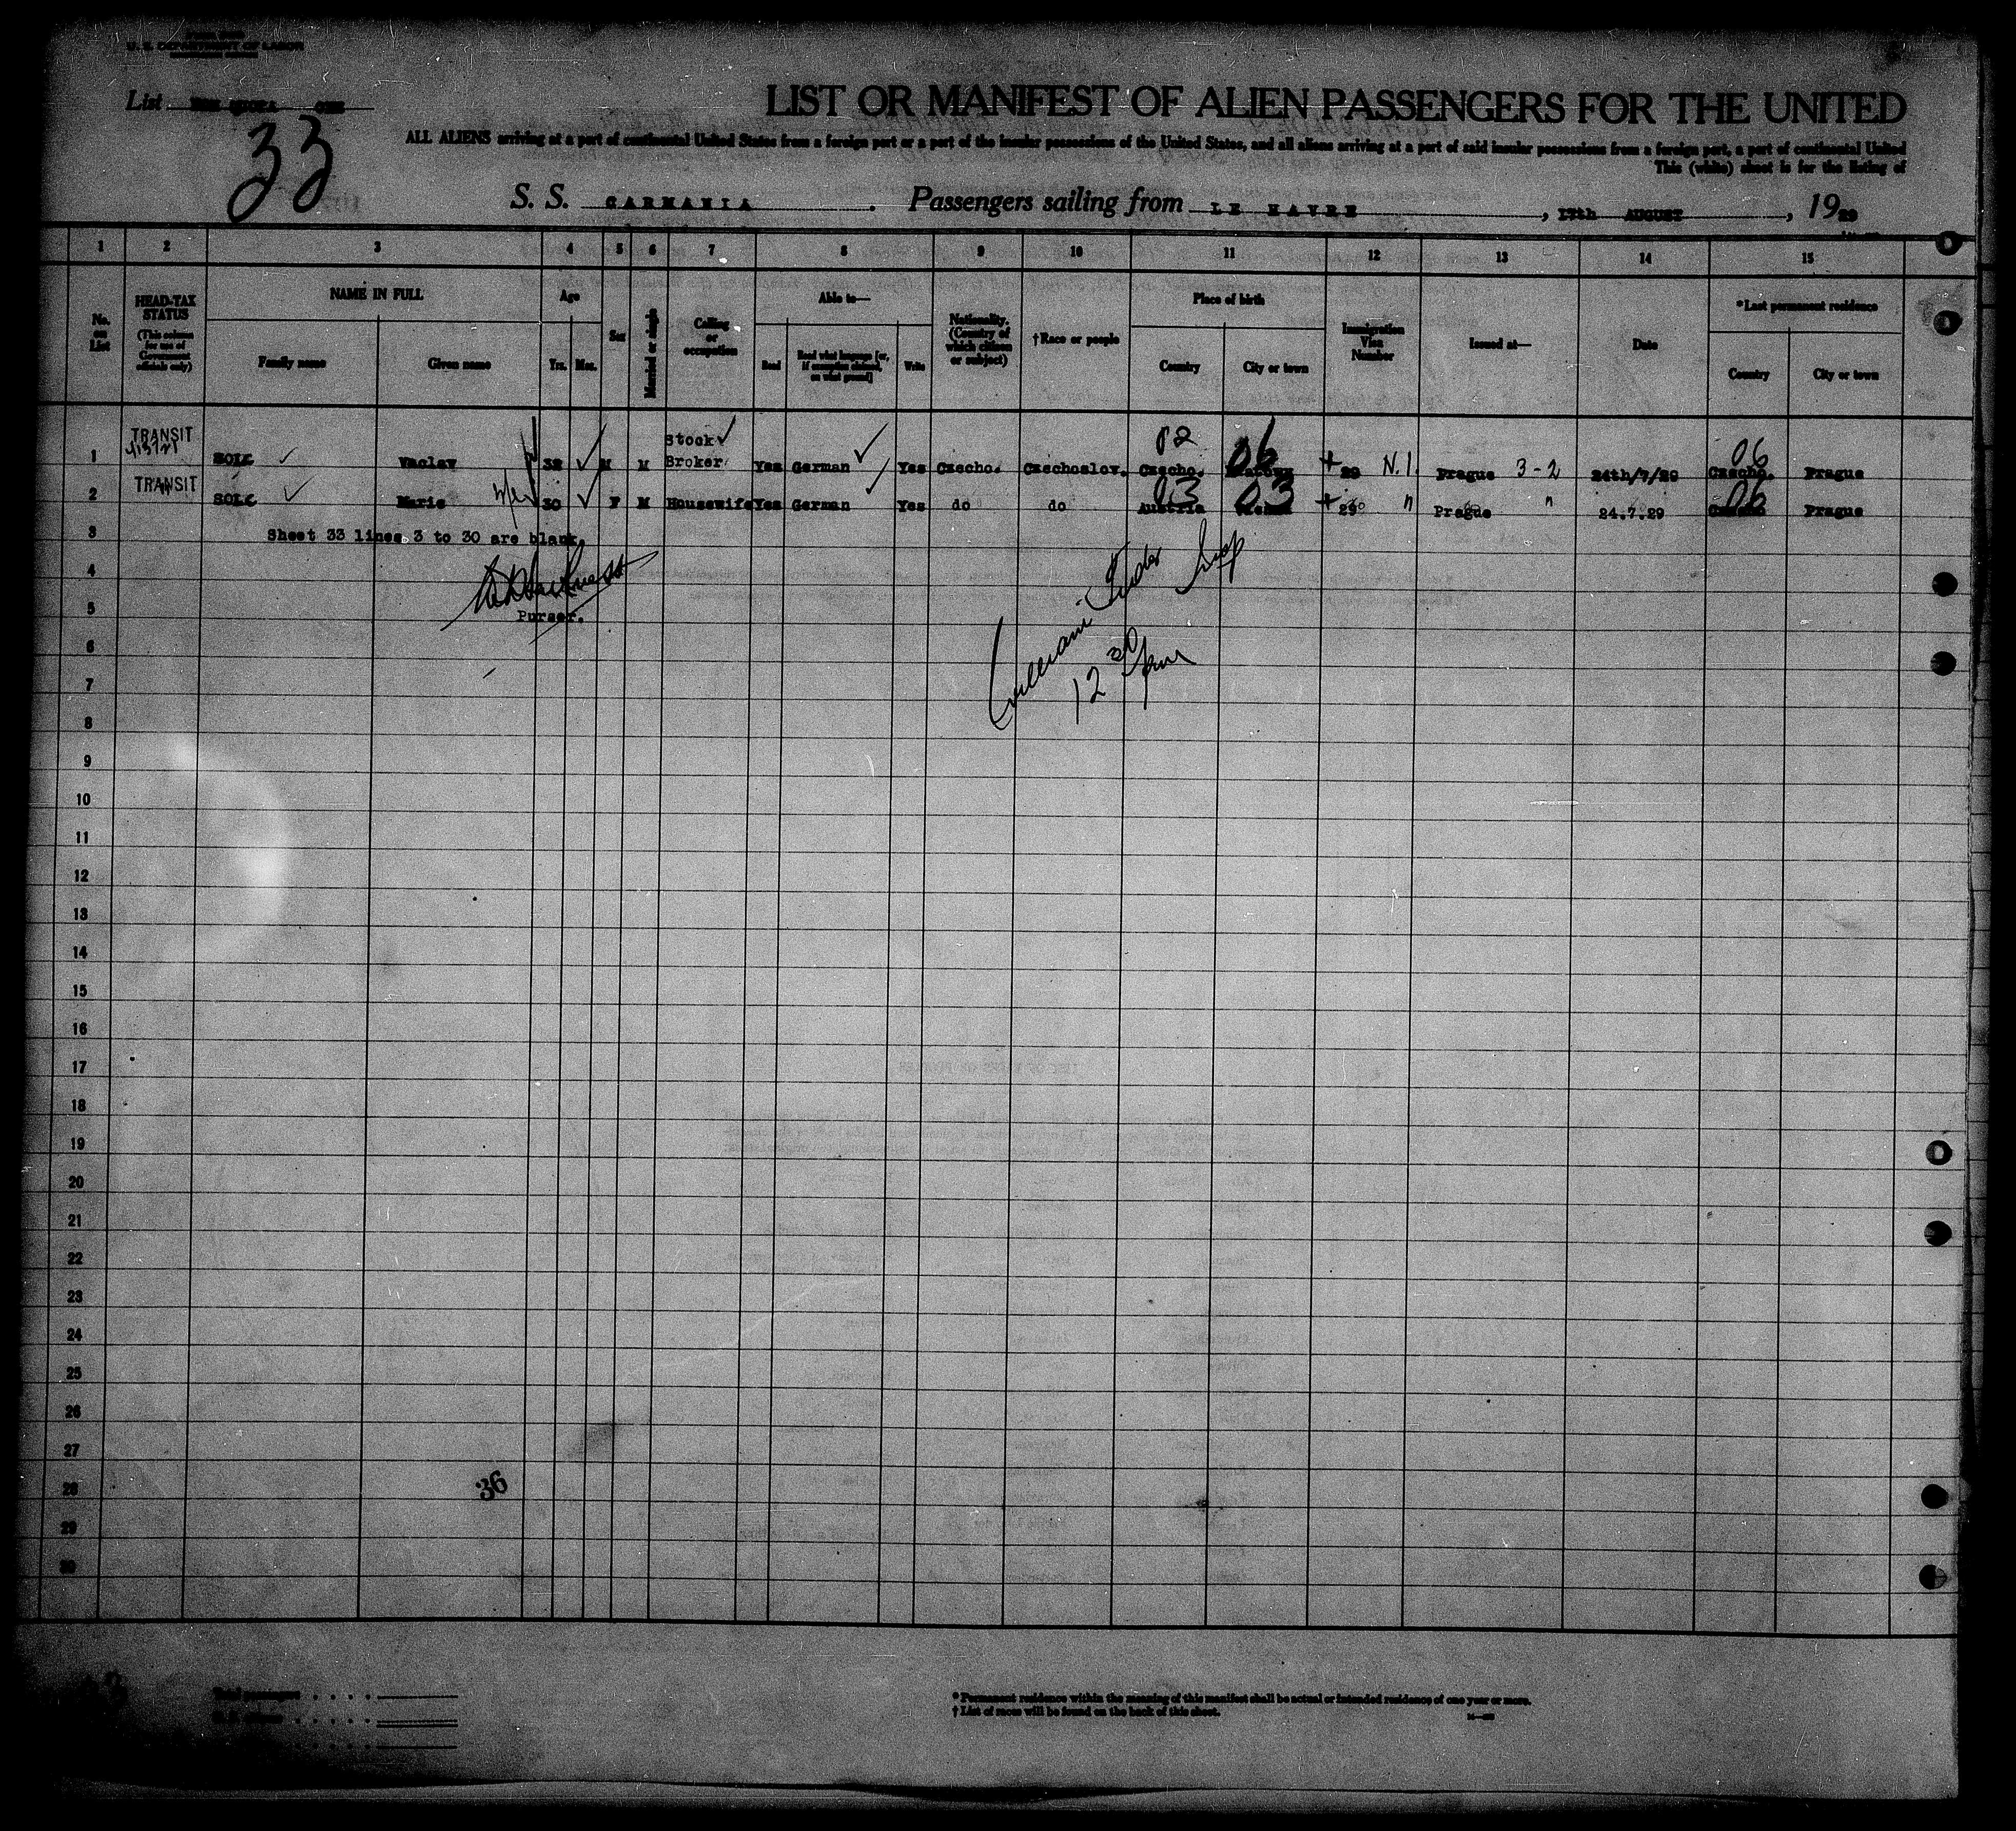 U. S. DEPARTMENT OF LABOR
List
33
LIST OR MANIFEST OF ALIEN PASSENGERS FOR THE UNITED
ALL ALIENS arriving at a port of continental United States from a foreign port or a port of the insular possessions of the United States, and all aliens arriving at a port of said insular possessions from a foreign port, a port of continental United
This (white) sheet is for the listing of
S. S. CARMANIA. Passengers sailing from LE HAVRE, 17th AUGUST, 1929
1 2 3 4 5 6 7 8 9 10 11 12 13 14 15
No. on List
HEAD-TAX STATUS
(This column for use of Government officials only)
NAME IN FULL
Family name
Given name
Age
Yrs. Mos.
Sex
Married or single
Calling or occupation
Able to—
Read
Read what language [or, if exemption claimed, on what ground]
Write
Nationality. (Country of which citizen or subject)
†Race or people
Place of birth
Country
City or town
Immigration Visa Number
Issued at—
Date
*Last permanent residence
Country
City or town
1 TRANSIT SOLC Vaclav M M Stock Broker Yes German Yes Czecho. Czechoslov. Czecho. 06 29 N.I. Prague 3-2 24th/7/29 06 Czecho. Prague
2 TRANSIT SOLC Marie 30 F M Housewife Yes German Yes do do 03 Austria 03 29 " Prague " 24.7.29 06 Czecho Prague
3 Sheet 33 lines 3 to 30 are blank.
4
5 Purser.
6
7 12 30 pm
8
9
10
11
12
13
14
15
16
17
18
19
20
21
22
23
24
25
26
27
28 36
29
30
Total passengers
* Permanent residence within the meaning of this manifest shall be actual or intended residence of one year or more.
† List of races will be found on the back of this sheet.